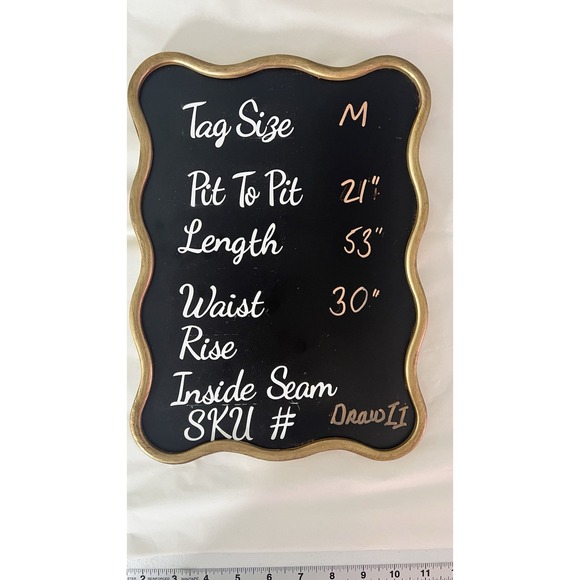 Tag Size M
Pit To Pit 21"
Length 53"
Waist 30"
Rise
Inside Seam
SKU # Draw II
2 3 4 5 6 7 8 9 10 11